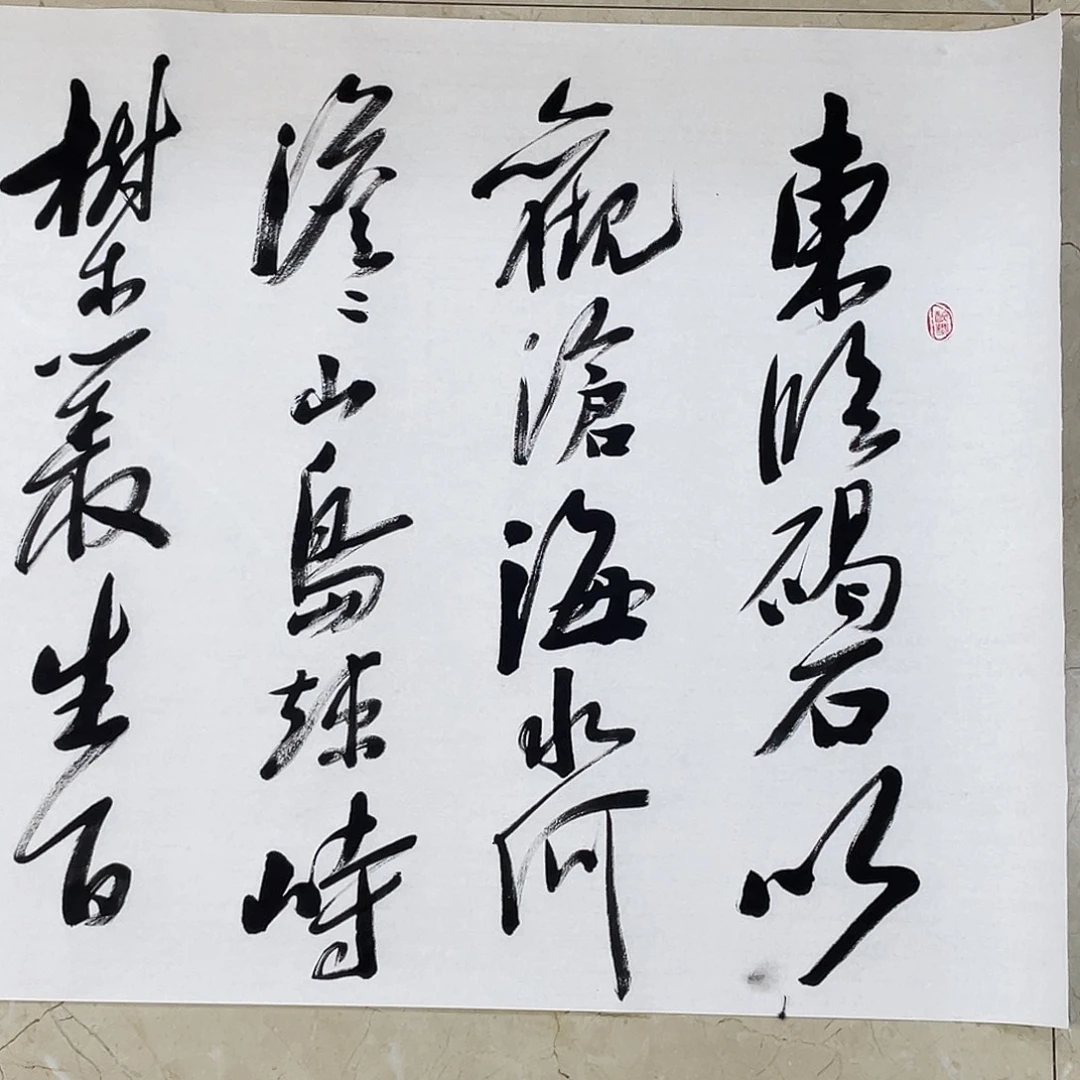 東臨碣石以
觀滄海水何
澹〻山島竦峙
樹木叢生百